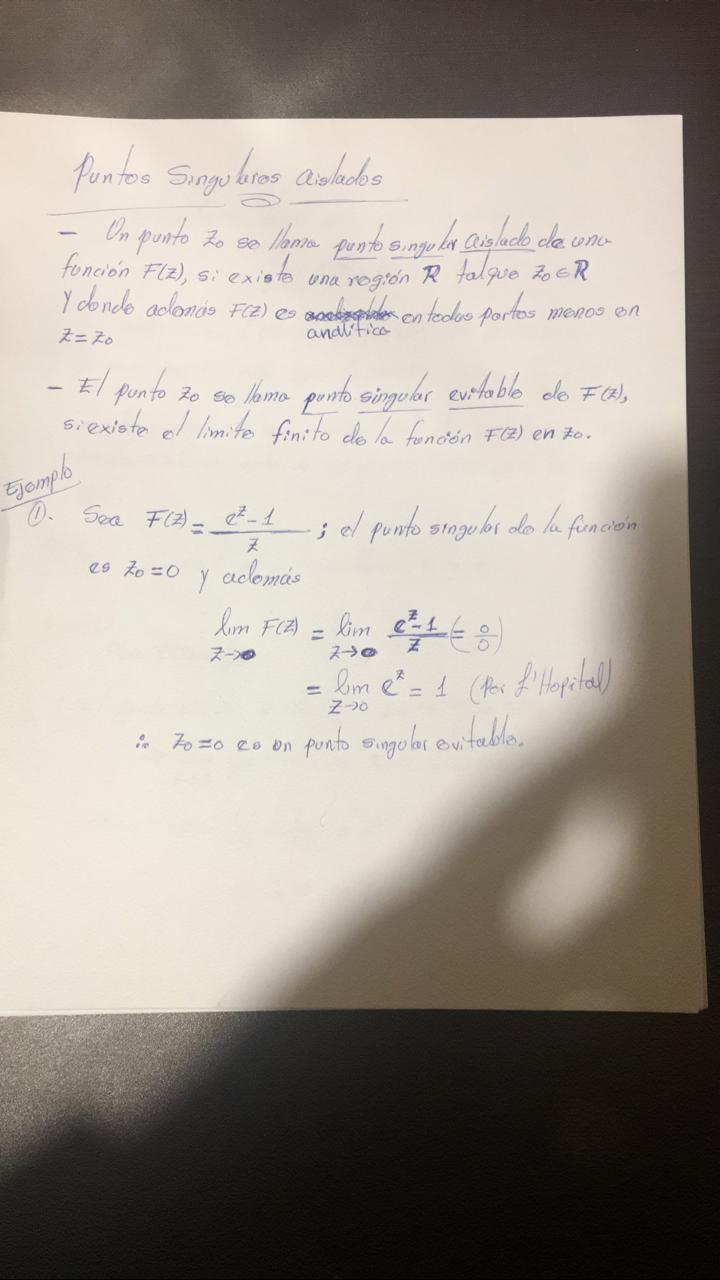 Puntos Singulares aislados
- Un punto z₀ se llama punto singular aislado de una
función F(z), si existe una región R tal que z₀ ∈ R
Y donde además F(z) es en todas partes menos en
analítica
z = z₀
- El punto z₀ se llama punto singular evitable de F(z),
si existe el limite finito de la función F(z) en z₀.
Ejemplo
①. Sea F(z) = (e^z - 1)/z ; el punto singular de la función
es z₀ = 0 y además
lim_{z→0} F(z) = lim_{z→0} (e^z - 1)/z (= 0/0)
= lim_{z→0} e^z = 1 (Por L'Hopital)
∴ z₀ = 0 es un punto singular evitable.